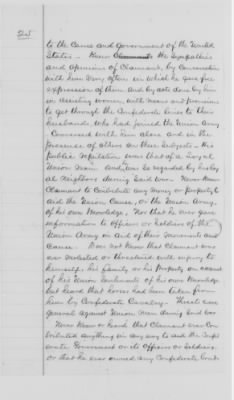 to the Cause and Government of the United
States — Knew Claimants the Sympathies
and opinions of Claimant, by Conversation
with him Very often in which he gave free
expression of them and by acts done by him
in assisting women, with means and provisions
to get through the Confederate lines to their
husbands who had joined the Union Army
Conversed with him alone and in the
presence of others on these subjects — His
public reputation was that of a Loyal
Union Man and was so regarded by his loyal
Neighbors during said war. Never knew
Claimant to Contribute any Money or property to
aid the Union Cause, or the Union Army
of his own Knowledge, Nor that he ever gave
information to officers or Soldiers of the
Union Army in aid of their Movements and
Cause. Does not Know that Claimant was
ever Molested or threatened with injury to
himself, his family or his property on account
of his Union Sentiments of his own Knowledge
but heard that horses had been taken from
him by Confederate Cavalry. Threats were
general against Union Men during said war
Never Knew or heard that Claimant ever Con-
tributed anything in any way to aid the Confed-
erate Government or its officers or Soldiers,
or that he ever owned any Confederate